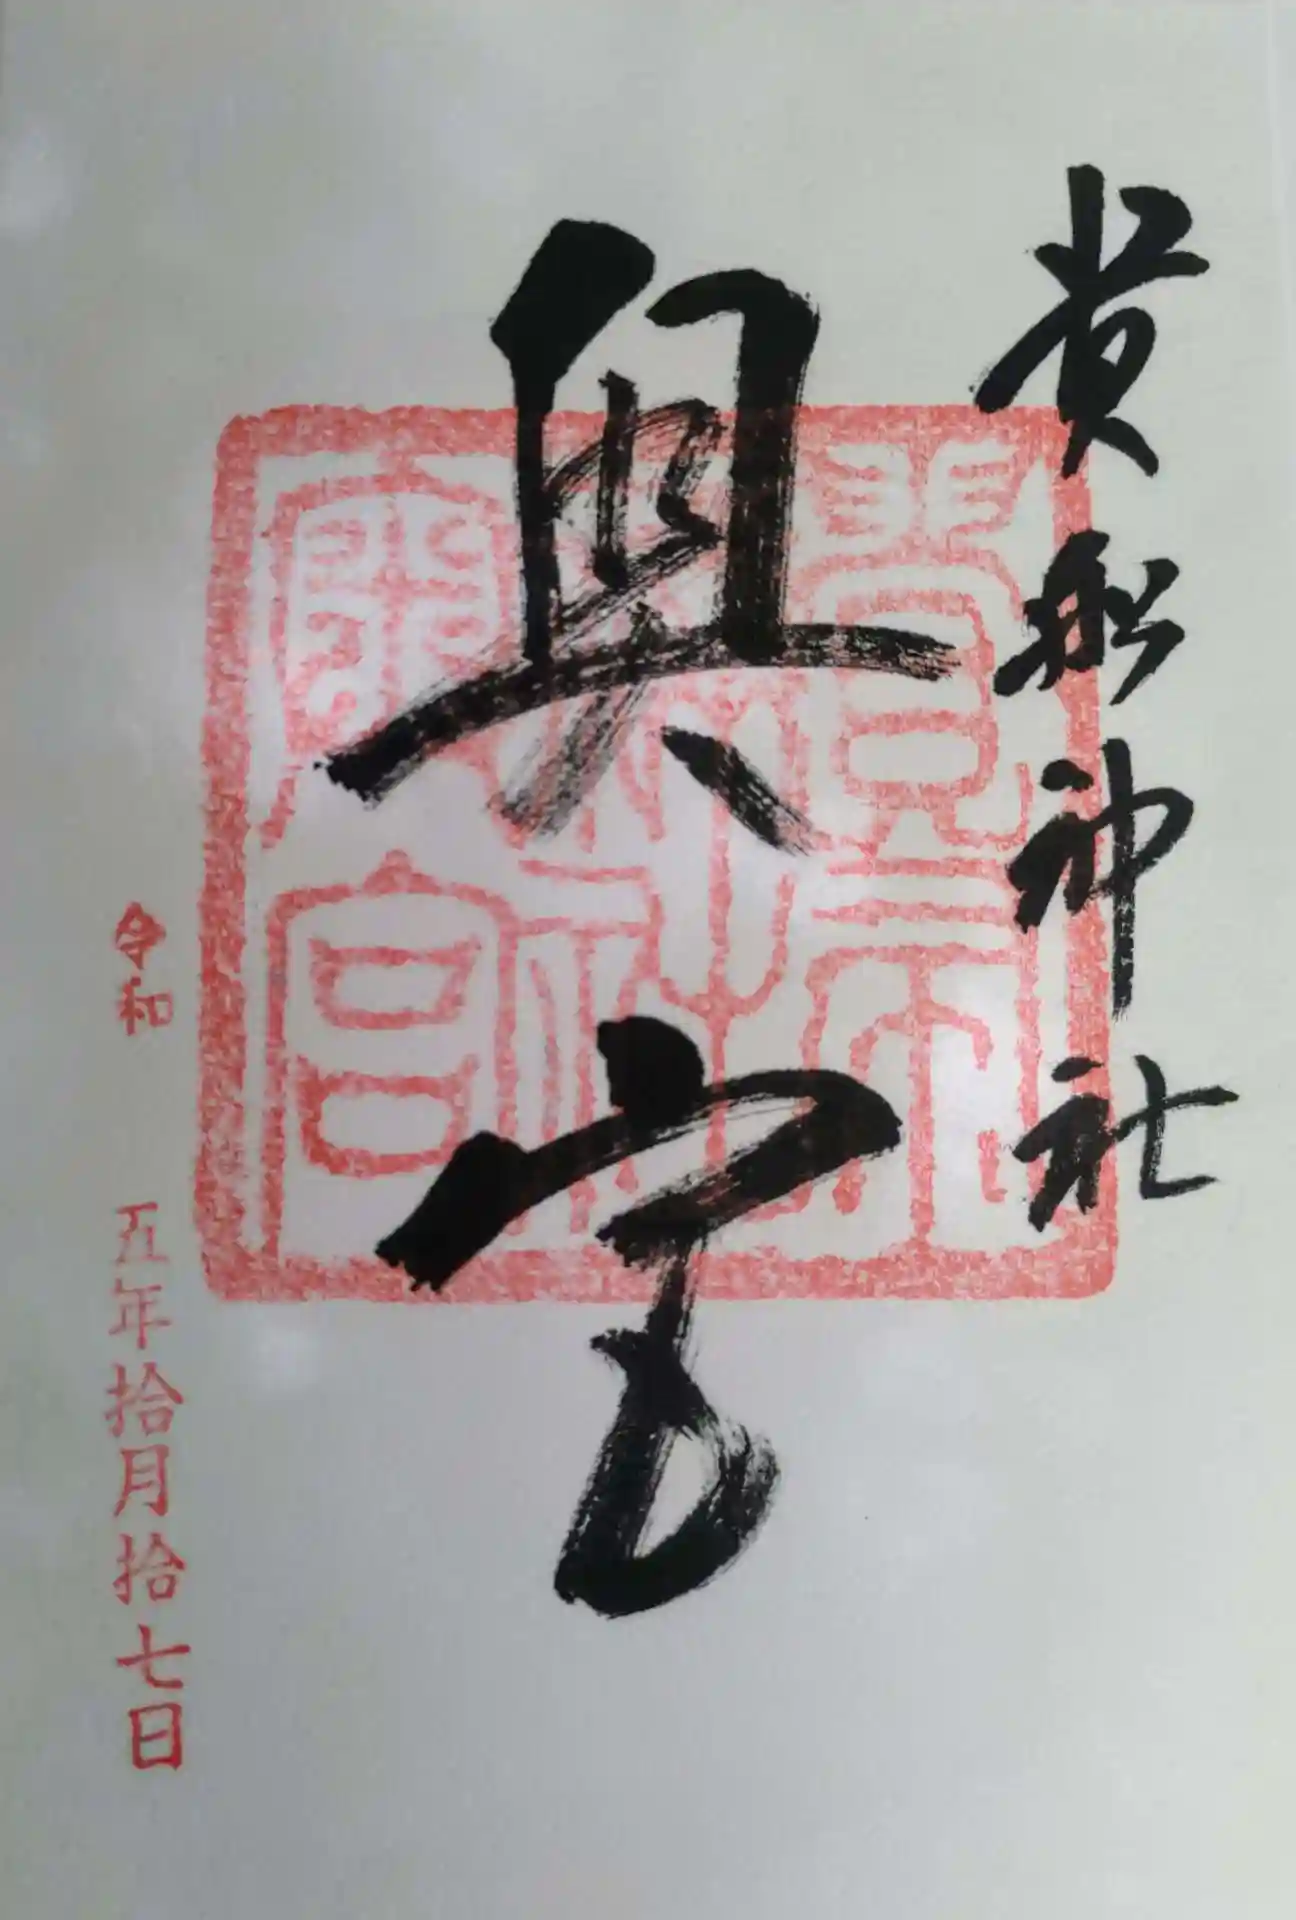 貴船神社
奥宮
貴布禰社奥宮
令和 五年拾月拾七日